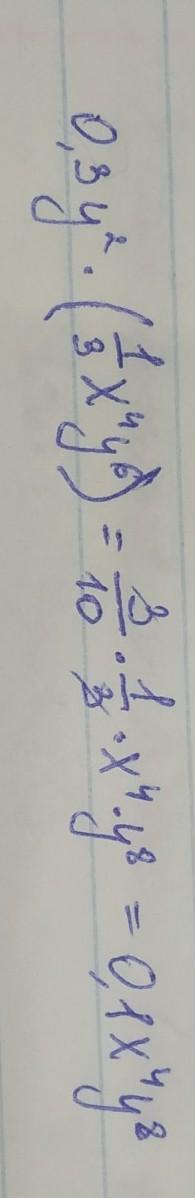 0,3y² · (1/3 x⁴y⁶) = 3/10 · 1/3 · x⁴ · y⁸ = 0,1x⁴y⁸